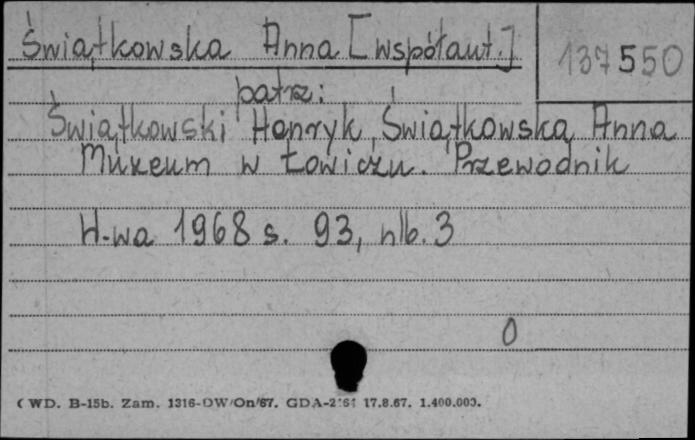 Świątkowska Anna [współaut.]
137550
patrz:
Świątkowski Henryk, Świątkowska Anna
Muzeum w Łowiczu. Przewodnik
W-wa 1968 s. 93, nlb. 3
0
WD. B-15b. Zam. 1316-DW/On/67. 17.8.67. 1.400.000.